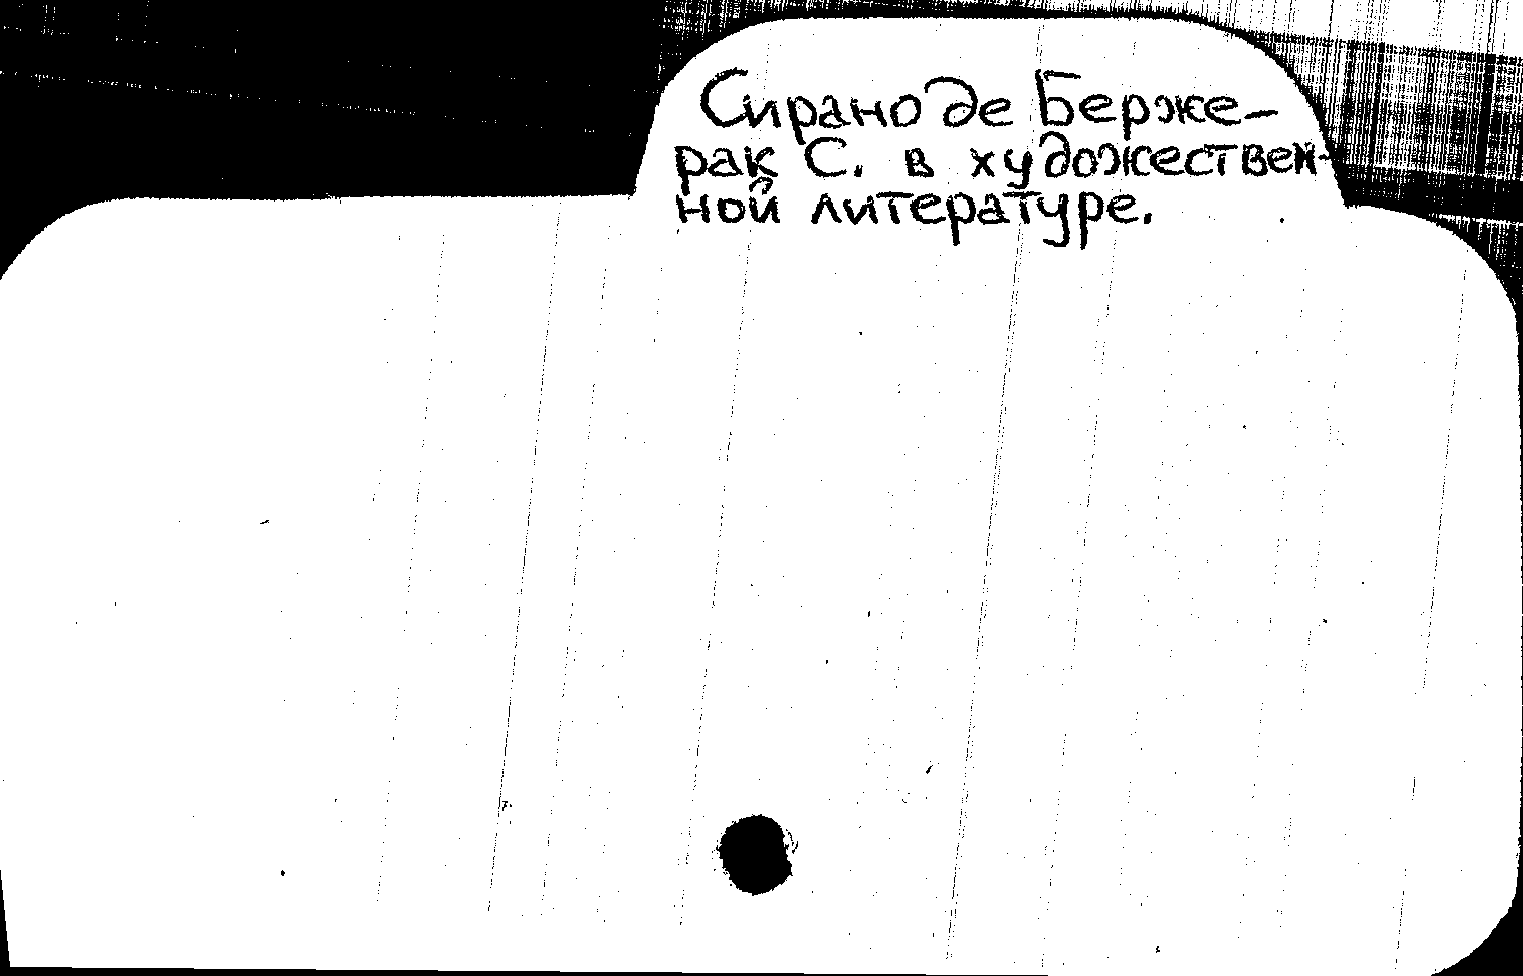 Сирано де Берже-
рак С. в художествен-
ной литературе.